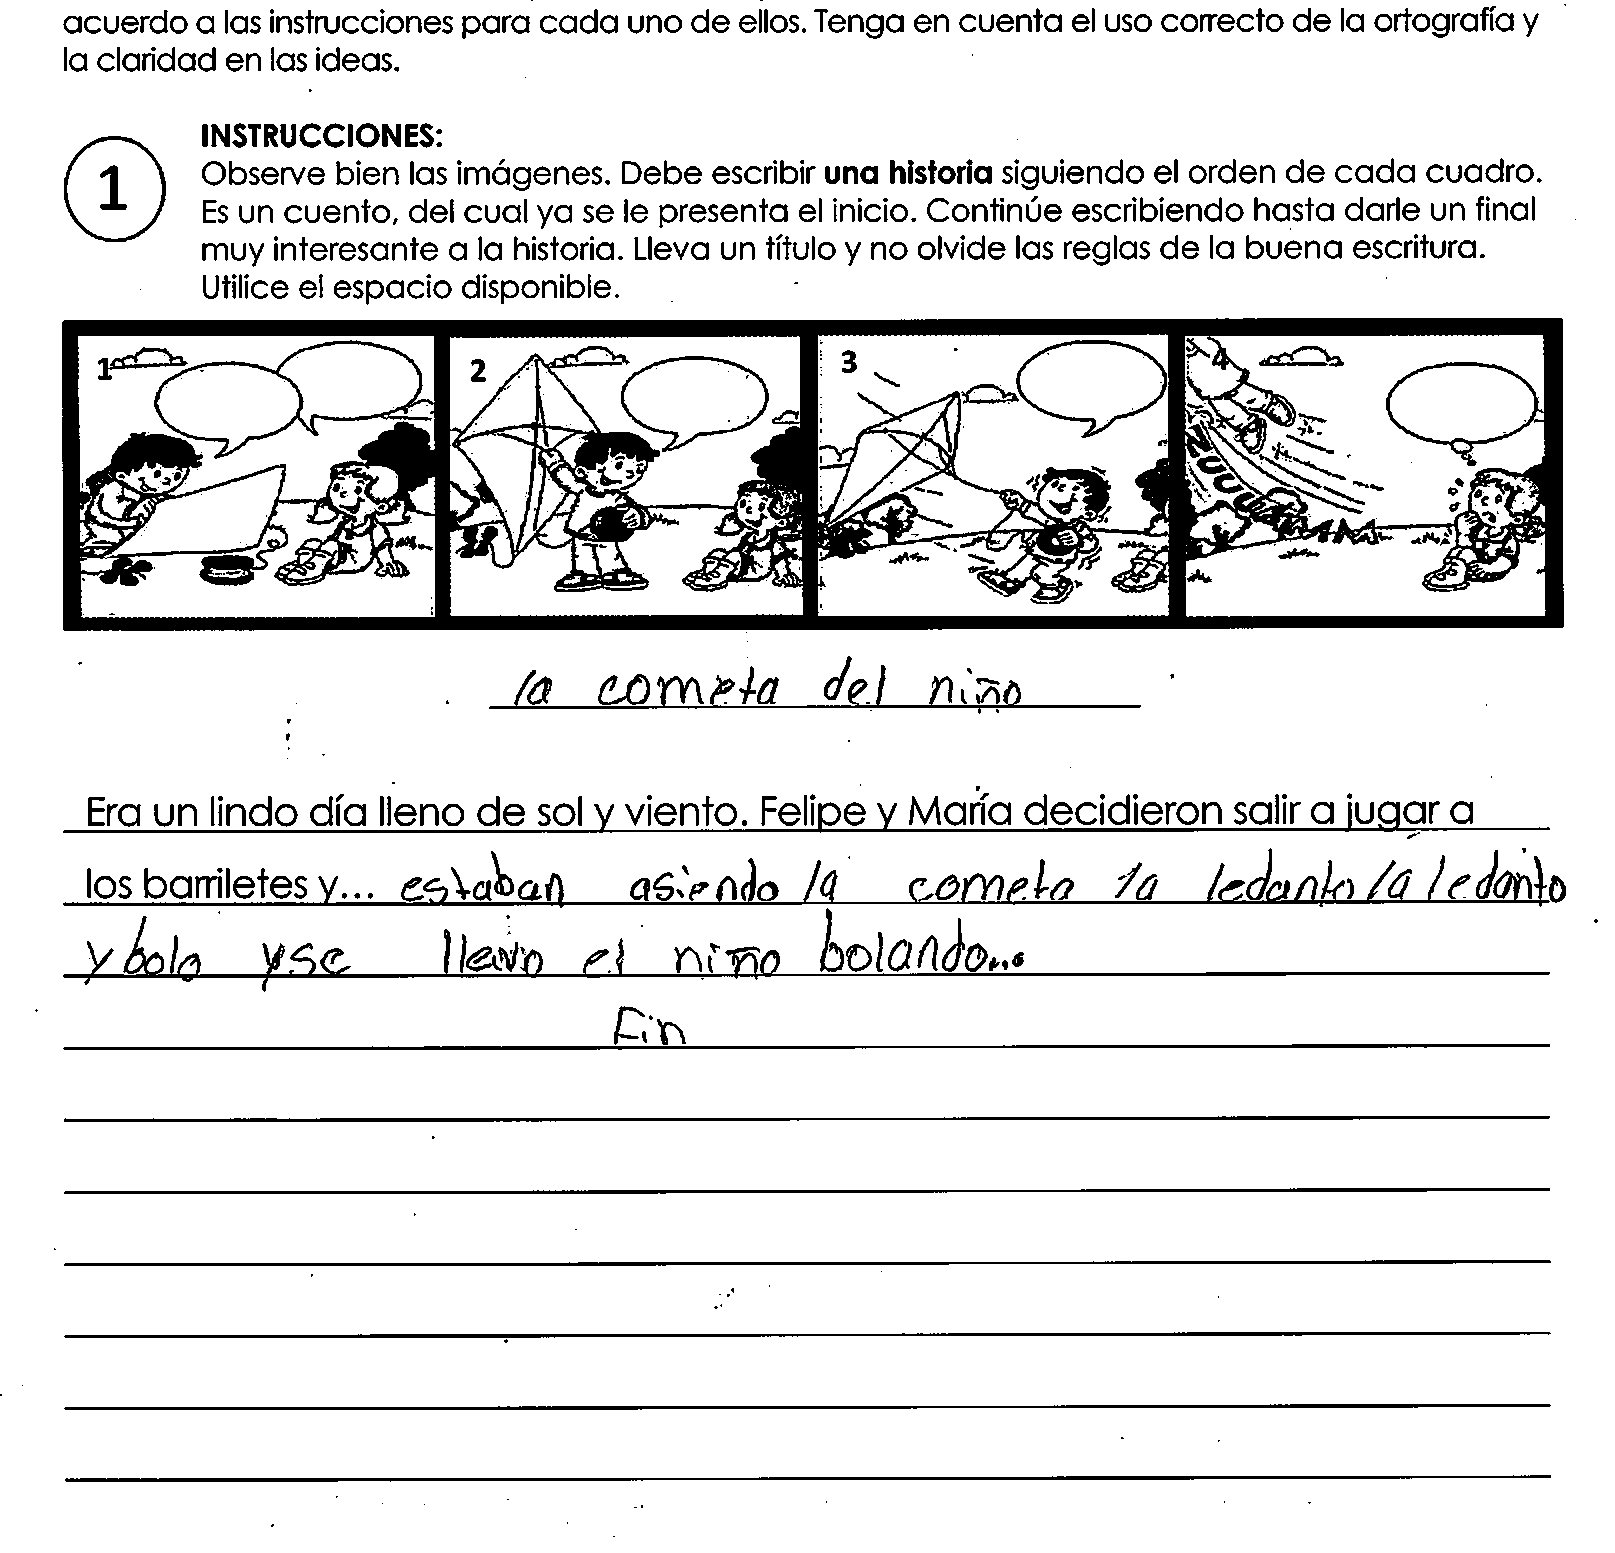 acuerdo a las instrucciones para cada uno de ellos. Tenga en cuenta el uso correcto de la ortografía y
la claridad en las ideas.
1
INSTRUCCIONES:
Observe bien las imágenes. Debe escribir una historia siguiendo el orden de cada cuadro.
Es un cuento, del cual ya se le presenta el inicio. Continúe escribiendo hasta darle un final
muy interesante a la historia. Lleva un título y no olvide las reglas de la buena escritura.
Utilice el espacio disponible.
1 2 3 4
ZUUUUMMM
la cometa del niño
Era un lindo día lleno de sol y viento. Felipe y María decidieron salir a jugar a
los barriletes y... estaban asiendo la cometa la ledanto la ledanto
y bolo y se llevo el niño bolando...
Fin